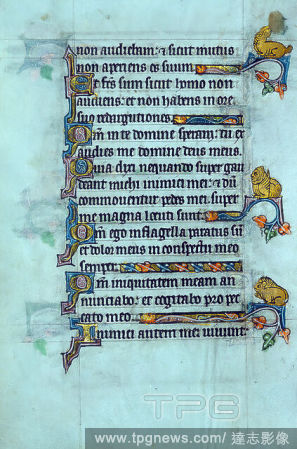 non audiebam: et sicut mutus
non aperiens os suum
Et factus sum sicut homo non
audiens: et non habens in ore
suo redargutiones
Quoniam in te domine speravi: tu ex
audies me domine deus meus
Quia dixi nequando super gau
deant michi inimici mei: et dum
commoventur pedes mei super
me magna locuti sunt
Quoniam ego in flagella paratus sum
et dolor meus in conspectu meo
semper
Quoniam iniquitatem meam an
nunciabo: et cogitabo pro pec
cato meo
Inimici autem mei vivunt
TPG
www.tpgnews.com/ 達志影像